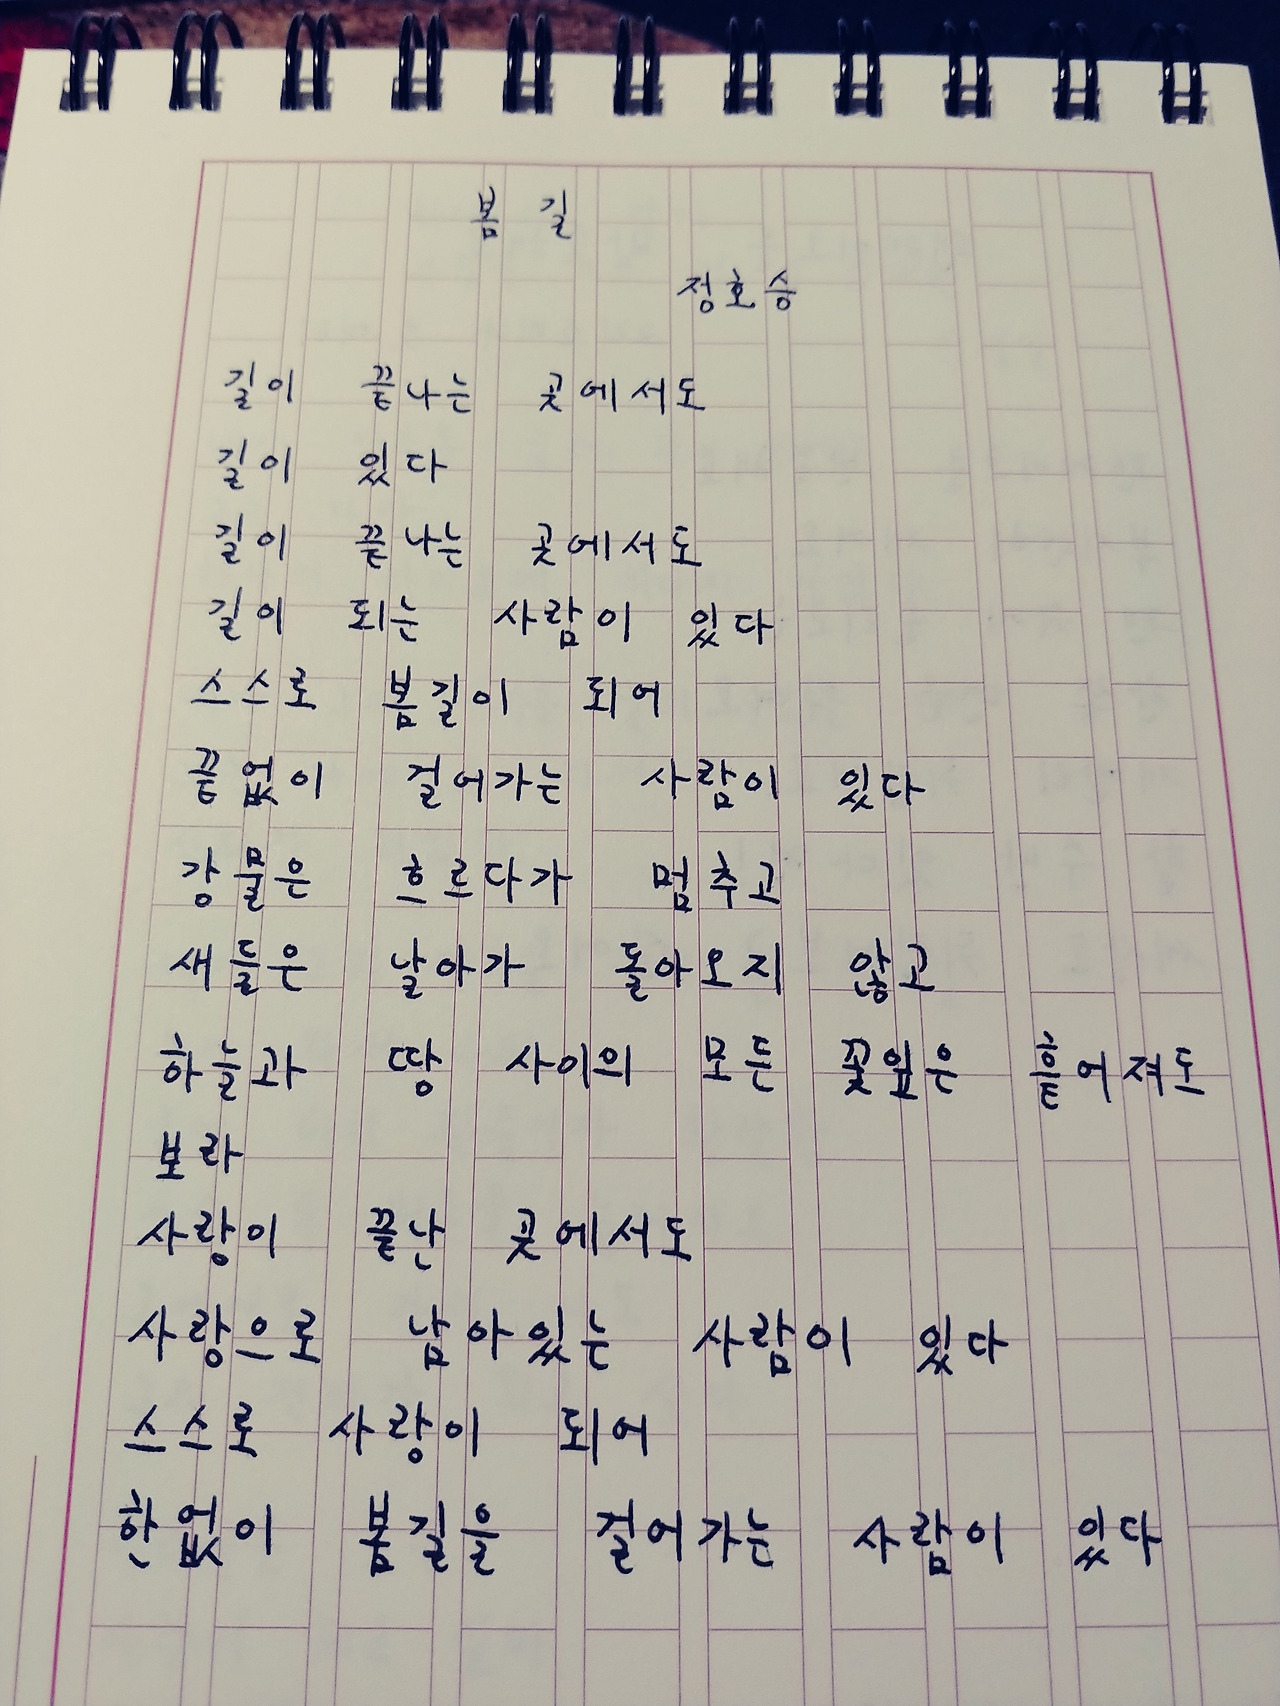 봄 길
정호승
길이 끝나는 곳에서도
길이 있다
길이 끝나는 곳에서도
길이 되는 사람이 있다
스스로 봄길이 되어
끝없이 걸어가는 사람이 있다
강물은 흐르다가 멈추고
새들은 날아가 돌아오지 않고
하늘과 땅 사이의 모든 꽃잎은 흩어져도
보라
사랑이 끝난 곳에서도
사랑으로 남아있는 사람이 있다
스스로 사랑이 되어
한없이 봄길을 걸어가는 사람이 있다